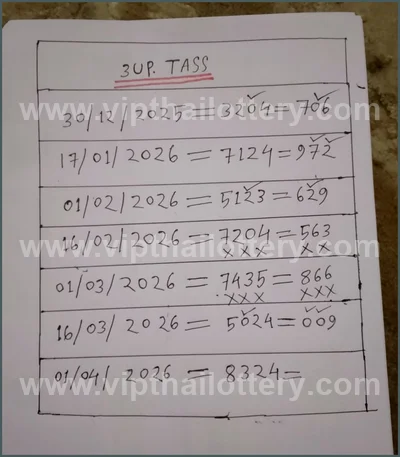 3UP. TASS
30/12/2025 = 3204 = 706
www.vipthailottery.com
17/01/2026 = 7124 = 972
01/02/2026 = 5123 = 629
16/02/2026 = 7204 = 563
www.vipthailottery.com
xxx xx
01/03/2026 = 7435 = 866
xxx xxx
16/03/2026 = 5024 = 009
01/04/2026 = 8324 =
www.vipthailottery.com